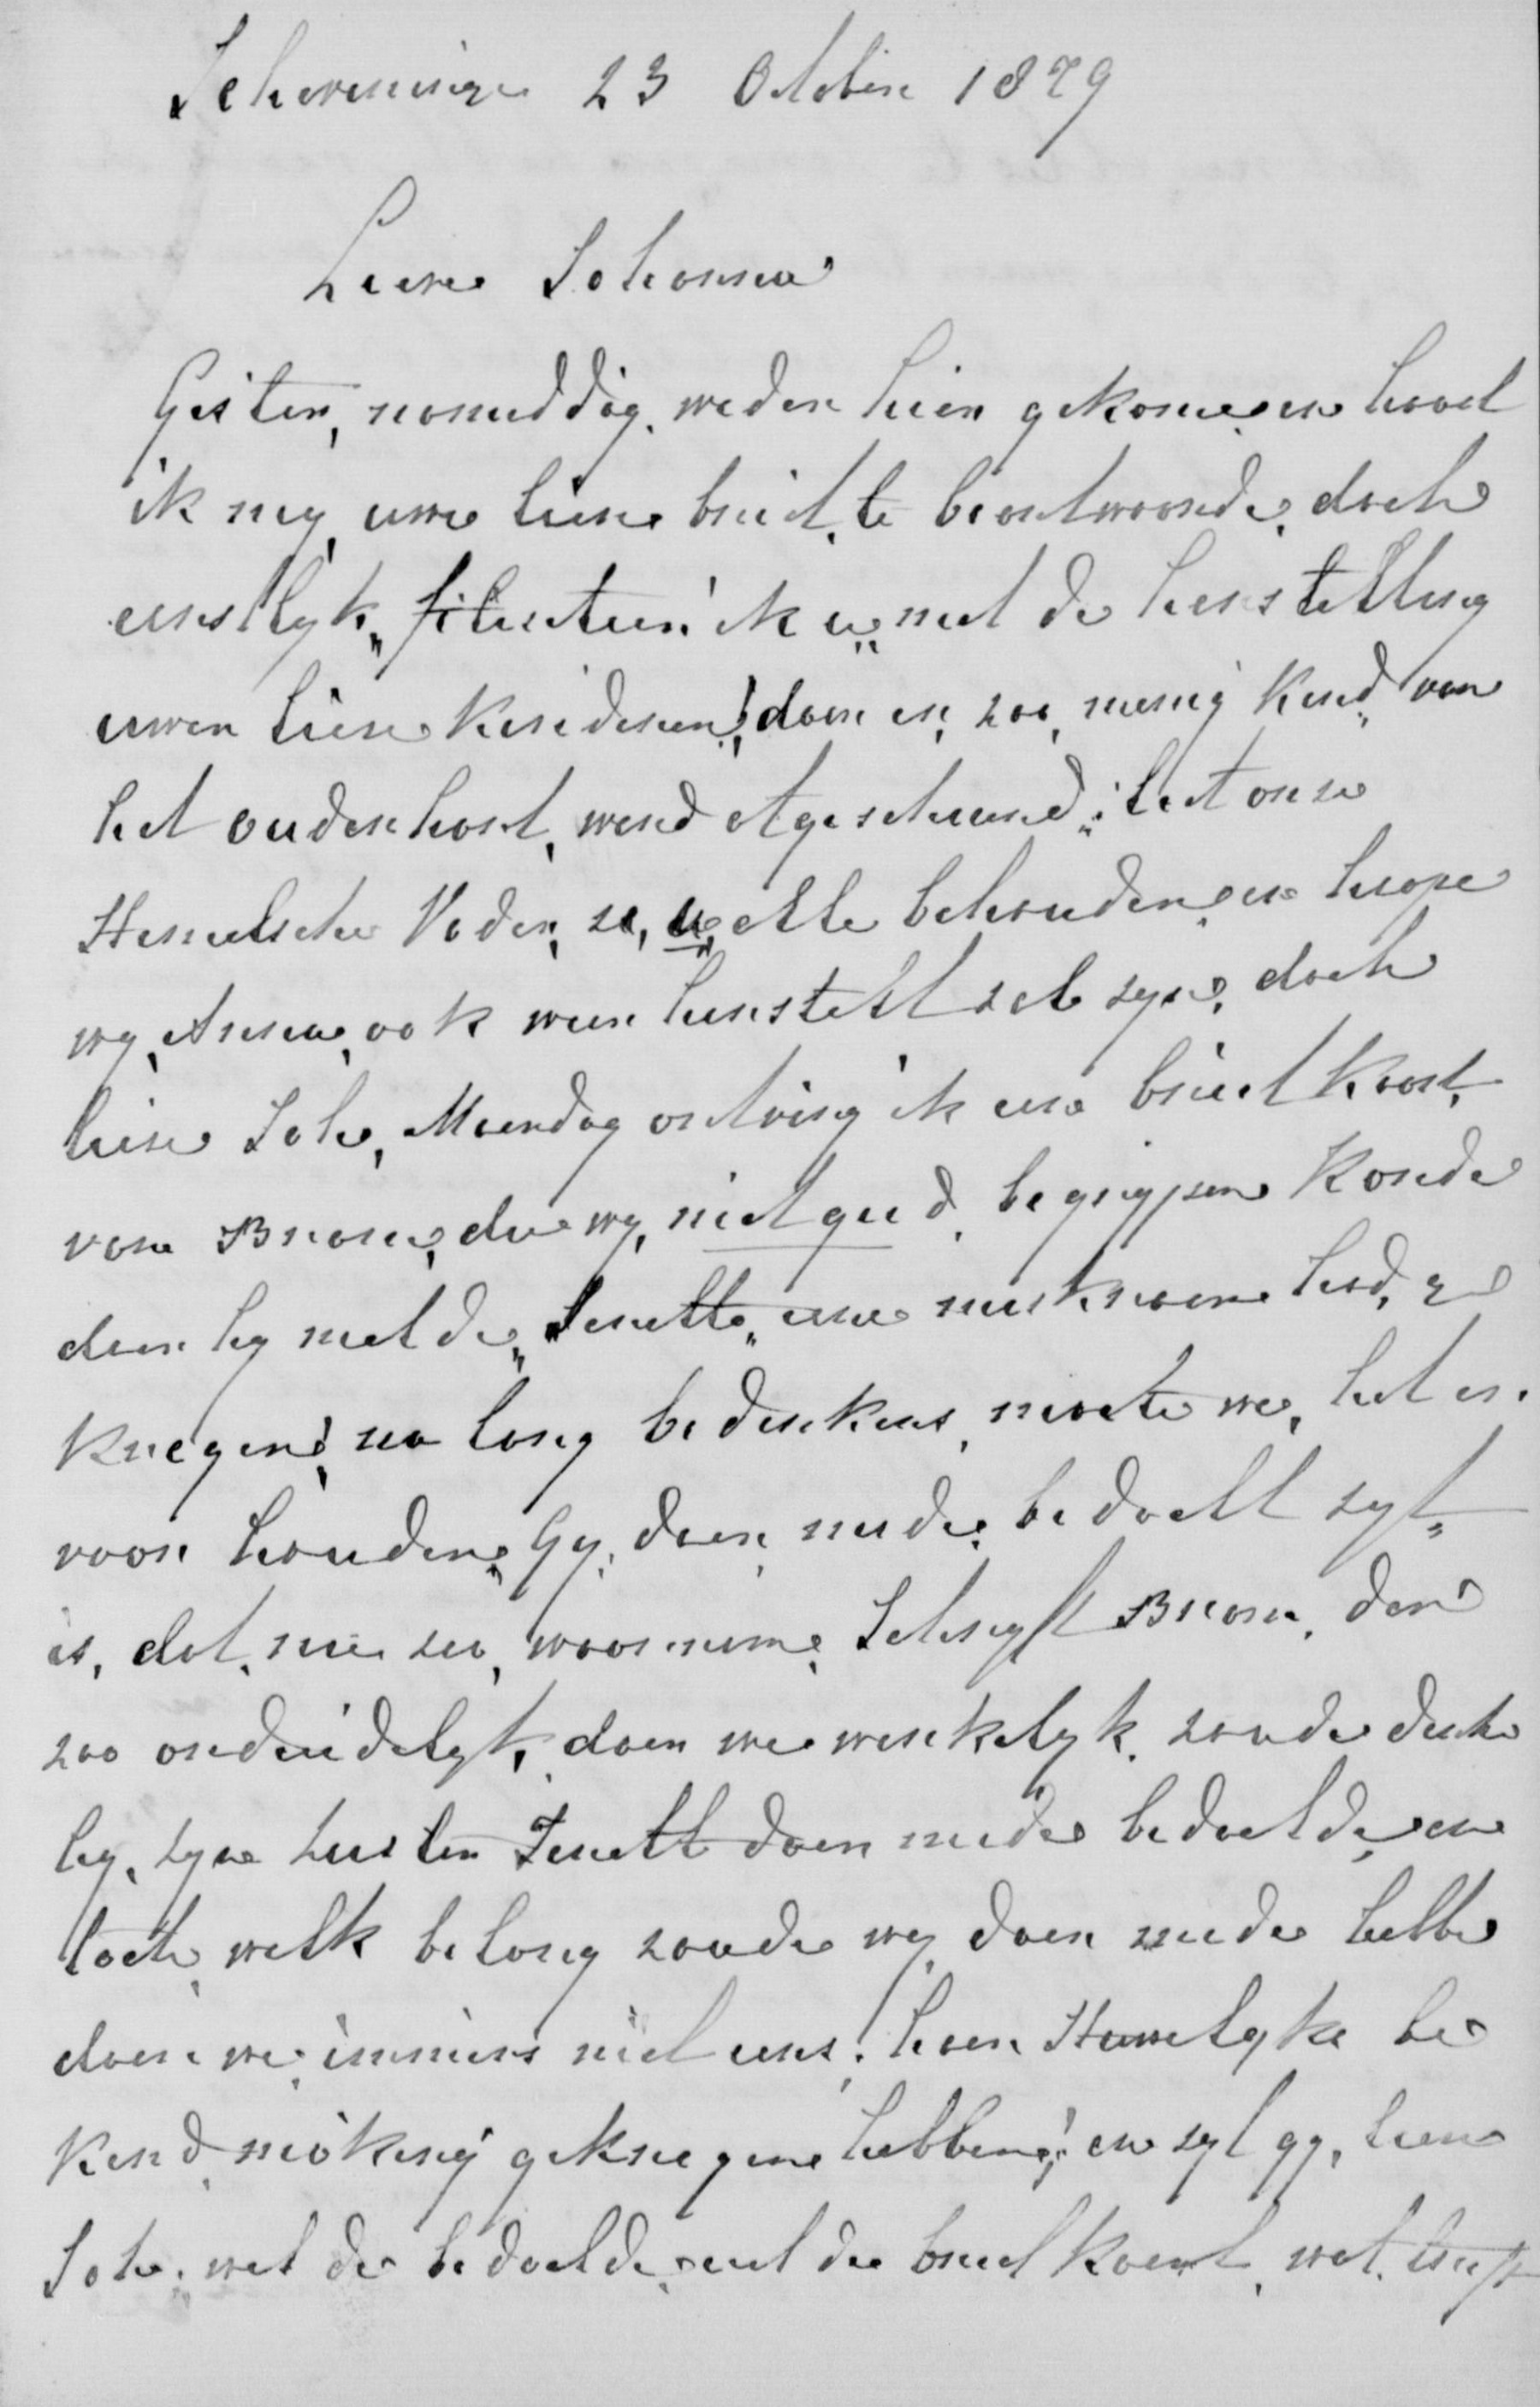 Scheveningen 23 October 1879
Lieve Johanna
Gister, namiddag, weder hier gekomen, en haast
ik my, uwe lieve brief, te beantwoorde, doch
eerstlyk, feliciteer ik u, met de herstelling
uwer lieve kinderen! daar er, zoo, menig kind, van
het ouder hart, werd afgescheurd; laat onze
Hemelsche Vader, ze, u, alle behouden, en hope
wy, Anna, ook weer herstelt zal zyn, doch
lieve Joh, Maandag ontving ik een briefkaart,
van Bram, die wy, niet goed, begrypen konde
daar hy melde, Jenette, een miskraam had, ge
kregen, na lang bedenkens, moete we, het er.
voor houden, Gy, daar mede, bedoelt zyt,
is, dat, nu zoo, waarom, Schryft Bram, dan
zoo onduidelyk, daar we werkelyk, zoude denke
hy, zyn zuster Jenett daar mede bedoelde, en
toch, welk belang zoude wy, daar mede hebbe
daar we, immers niet eens, haar Huwelyke be
kend making gekregen hebben; en zyt gy, lieve
Joh, met de bedoelde, uit die briefkaart, wat